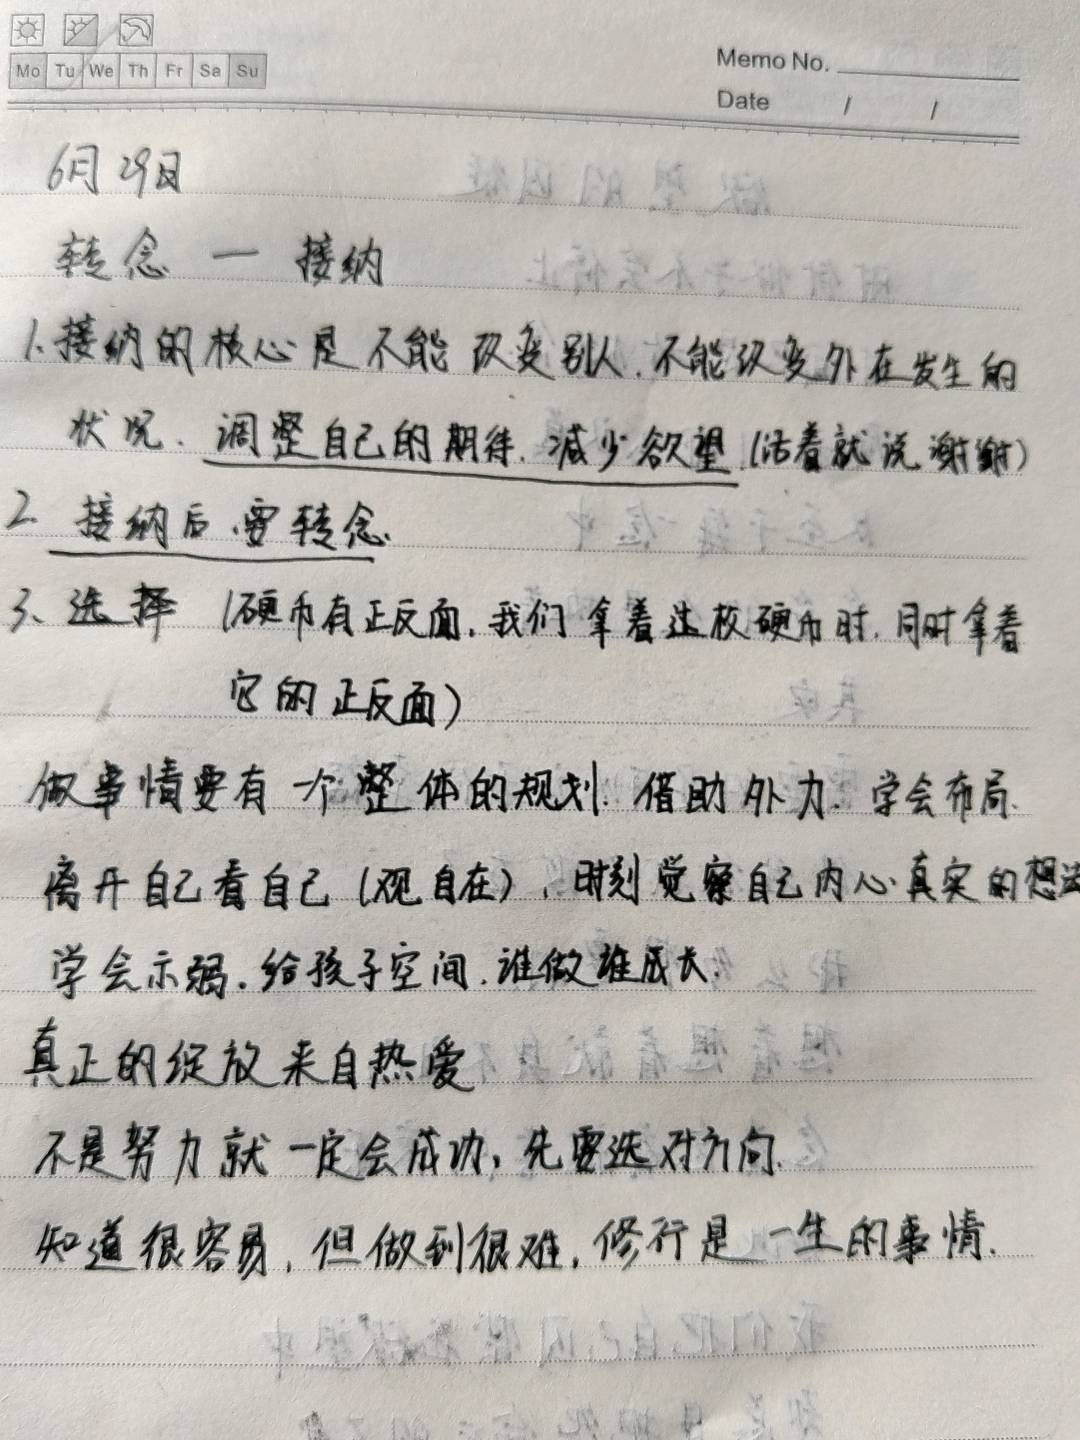 Mo Tu We Th Fr Sa Su
Memo No.
Date / /
6月29日
转念 — 接纳
1、接纳的核心是不能改变别人、不能改变外在发生的
状况、调整自己的期待、减少欲望(活着就说谢谢)
2、接纳后、要转念、
3、选择 (硬币有正反面,我们拿着这枚硬币时,同时拿着
它的正反面)
做事情要有一个整体的规划、借助外力、学会布局、
离开自己看自己(观自在)、时刻觉察自己内心真实的想法
学会示弱。给孩子空间、谁做谁成长、
真正的绽放来自热爱
不是努力就一定会成功,先要选对方向、
知道很容易,但做到很难,修行是一生的事情、